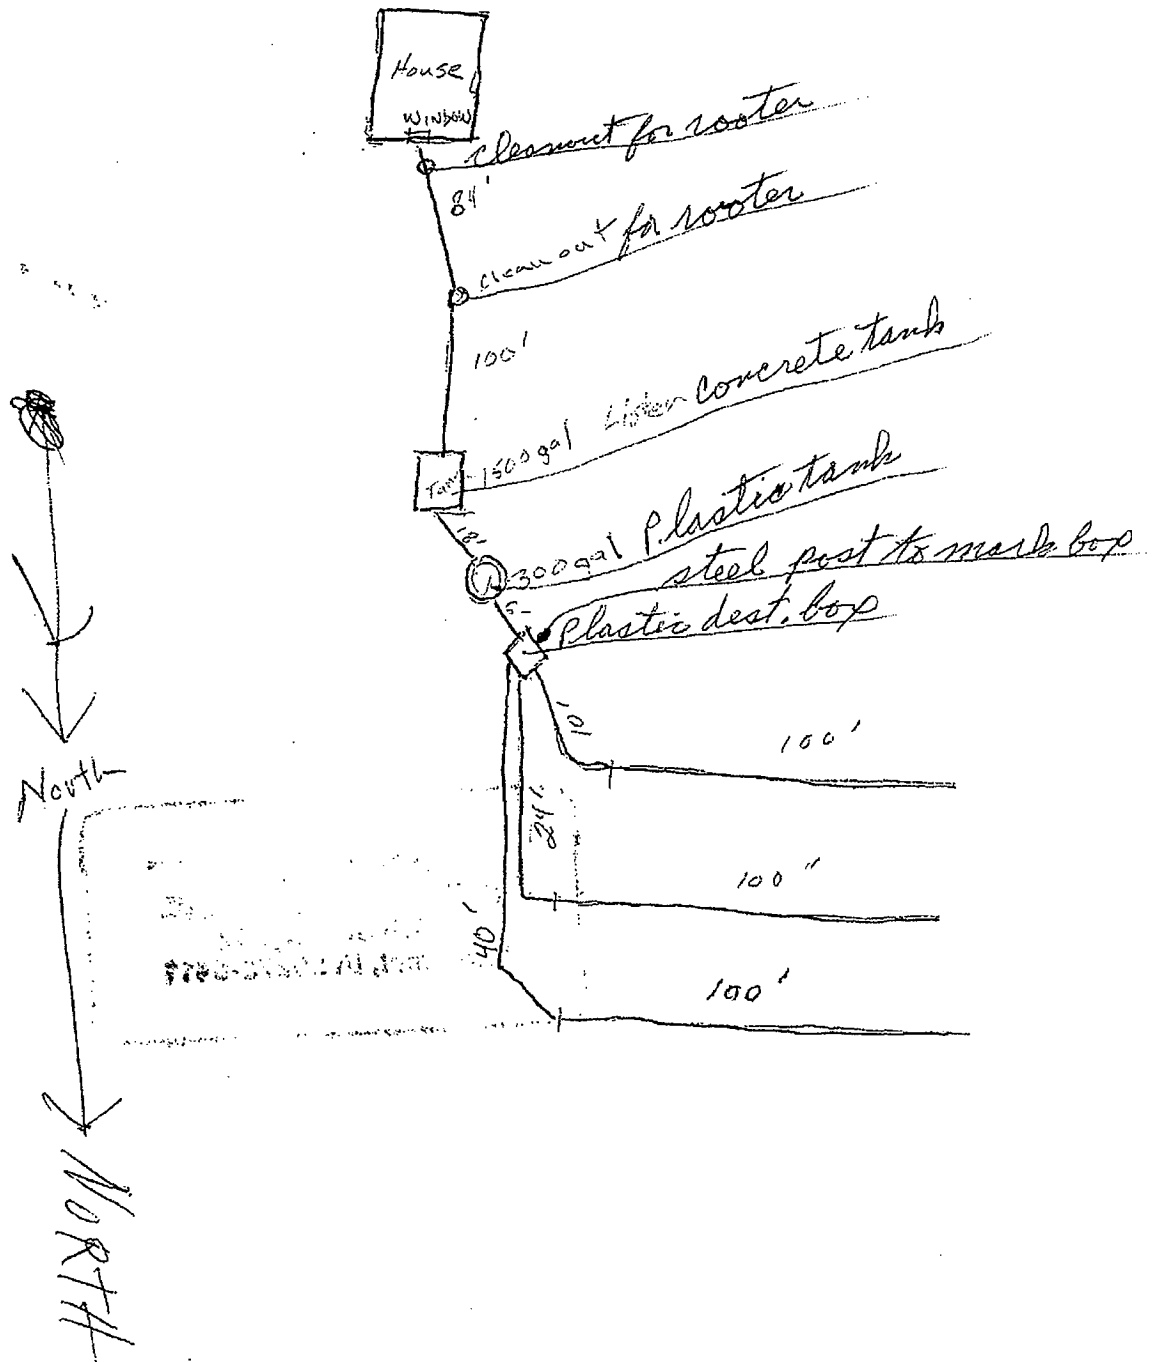 House
WINDOW
cleanout for rooter
84'
clean out for rooter
100'
Tank
1500 gal Lister concrete tank
18'
300 gal Plastic tank
steel post to mark box
5'
Plastic dest. box
10'
100'
North
24'
100"
40'
100'
NORTH